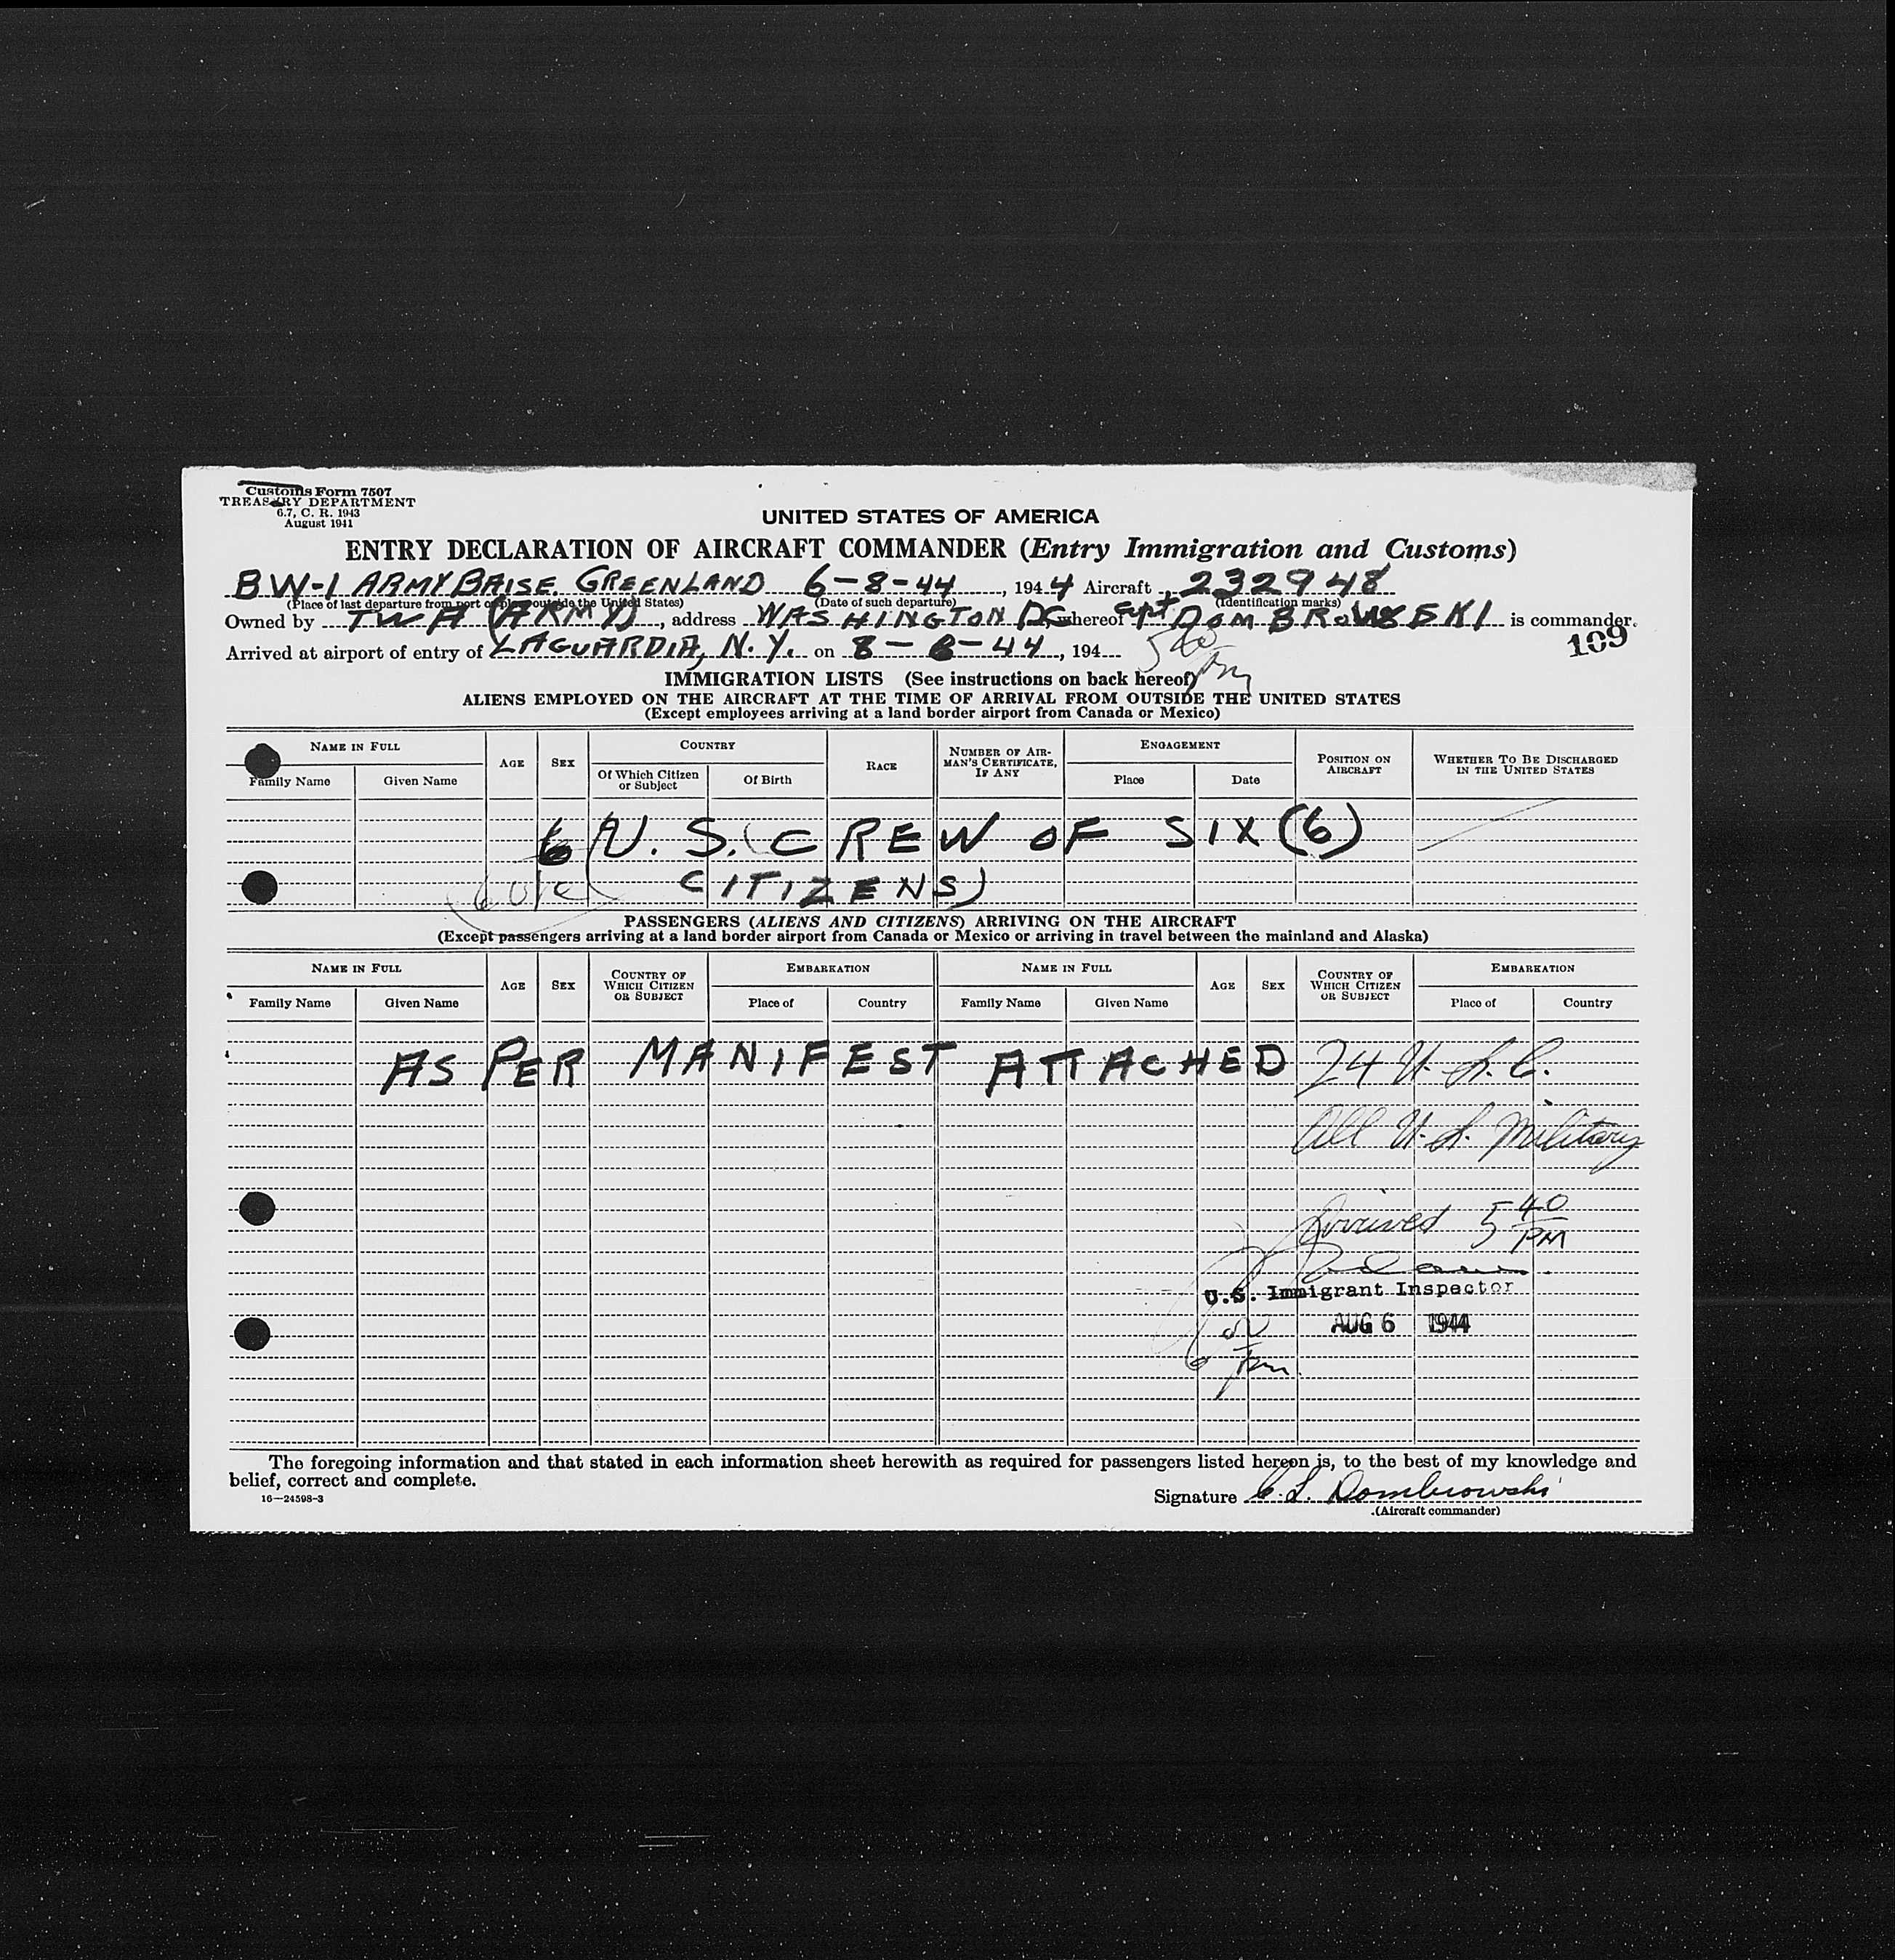 Customs Form 7507
TREASURY DEPARTMENT
6.7, C. R. 1943
August 1941
UNITED STATES OF AMERICA
ENTRY DECLARATION OF AIRCRAFT COMMANDER (Entry Immigration and Customs)
BW-1 ARMY BAISE. GREENLAND 6-8-44, 1944 Aircraft 232948
(Place of last departure from port or place outside the United States) (Date of such departure) (Identification marks)
Owned by TWA (ARMY), address WASHINGTON DC whereof Capt DOMBROWSKI is commander.
Arrived at airport of entry of LAGUARDIA, N.Y. on 8-6-44, 194 540 PM
109
IMMIGRATION LISTS (See instructions on back hereof)
ALIENS EMPLOYED ON THE AIRCRAFT AT THE TIME OF ARRIVAL FROM OUTSIDE THE UNITED STATES
(Except employees arriving at a land border airport from Canada or Mexico)
NAME IN FULL AGE SEX COUNTRY RACE NUMBER OF AIRMAN'S CERTIFICATE, IF ANY ENGAGEMENT POSITION ON AIRCRAFT WHETHER TO BE DISCHARGED IN THE UNITED STATES
Family Name Given Name Of Which Citizen or Subject Of Birth Place Date
6 U.S. (CREW OF SIX (6)
CITIZENS)
6 USC
PASSENGERS (ALIENS AND CITIZENS) ARRIVING ON THE AIRCRAFT
(Except passengers arriving at a land border airport from Canada or Mexico or arriving in travel between the mainland and Alaska)
NAME IN FULL AGE SEX COUNTRY OF WHICH CITIZEN OR SUBJECT EMBARKATION NAME IN FULL AGE SEX COUNTRY OF WHICH CITIZEN OR SUBJECT EMBARKATION
Family Name Given Name Place of Country Family Name Given Name Place of Country
AS PER MANIFEST ATTACHED 24 U.S.C.
All U.S. Military
Arrived 5 40 PM
U.S. Immigrant Inspector
AUG 6 1944
The foregoing information and that stated in each information sheet herewith as required for passengers listed hereon is, to the best of my knowledge and
belief, correct and complete.
16—24598-3
Signature C. L. Dombrowski
(Aircraft commander)